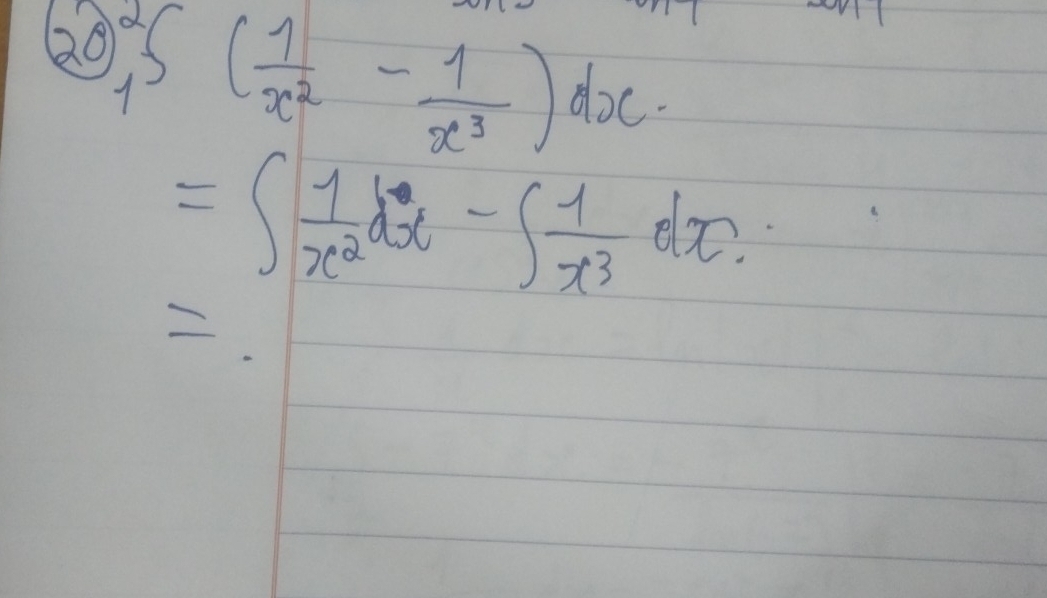 20) ₁²∫ (1/x² - 1/x³) dx.
= ∫ 1/x² dx - ∫ 1/x³ dx.
= .